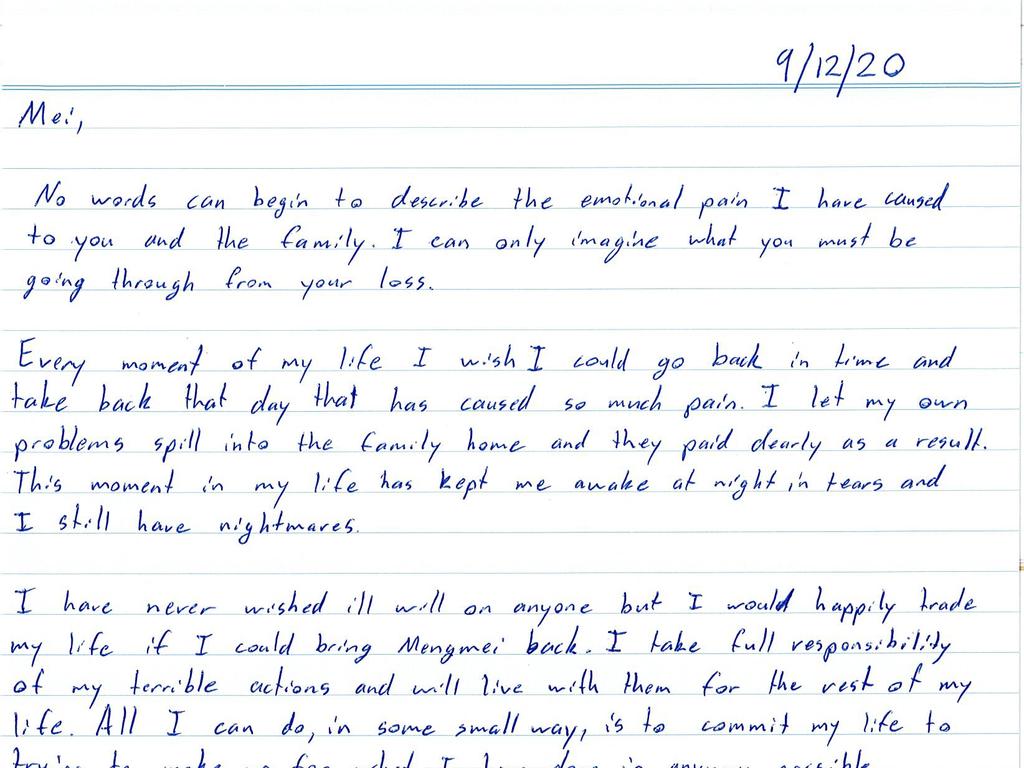 9/12/20
Mei,
No words can begin to describe the emotional pain I have caused
to you and the family. I can only imagine what you must be
going through from your loss.
Every moment of my life I wish I could go back in time and
take back that day that has caused so much pain. I let my own
problems spill into the family home and they paid dearly as a result.
This moment in my life has kept me awake at night in tears and
I still have nightmares.
I have never wished ill will on anyone but I would happily trade
my life if I could bring Mengmei back. I take full responsibility
of my terrible actions and will live with them for the rest of my
life. All I can do, in some small way, is to commit my life to
trying to make up for what I have done in anyway possible